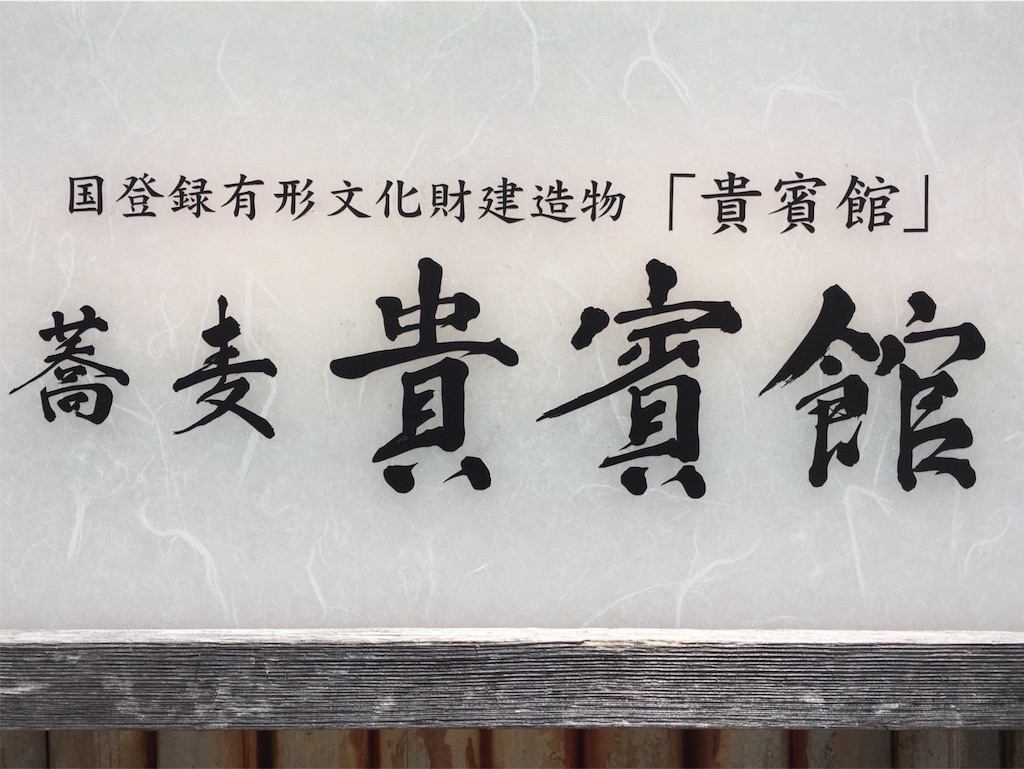 国登録有形文化財建造物「貴賓館」
蕎麦 貴賓館